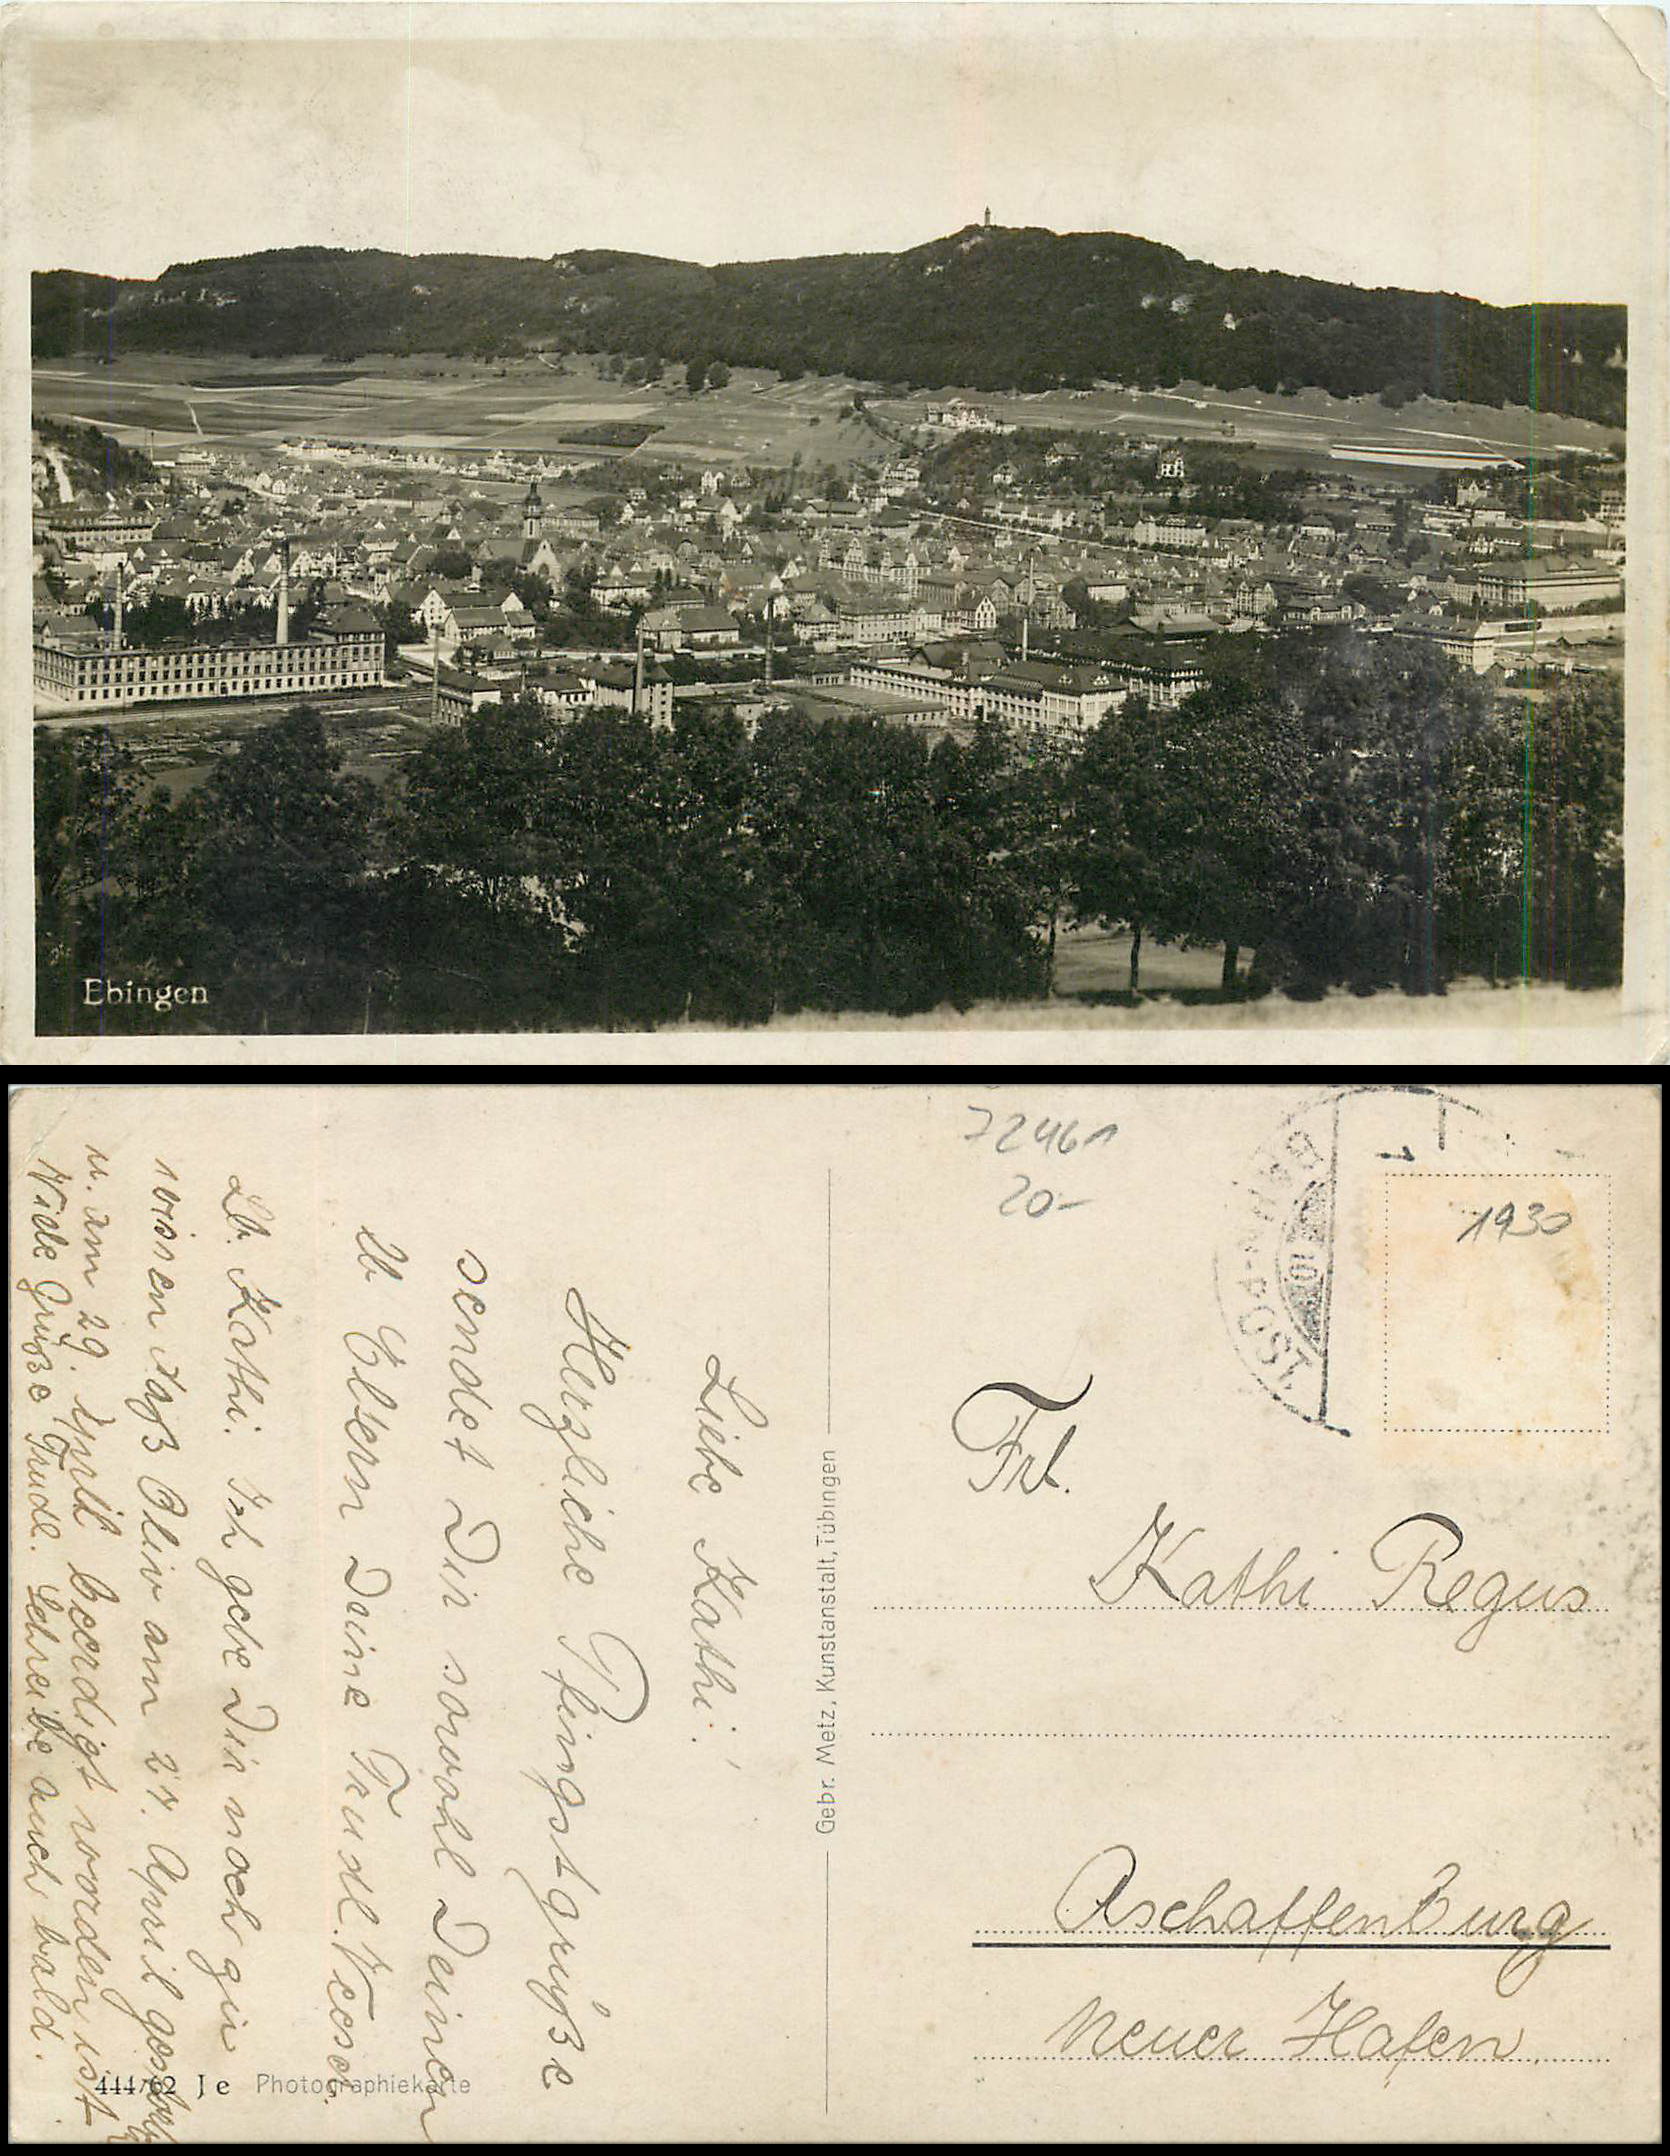 Ebingen
72461
20-
1930
BAHNPOST
Frl.
Kathi Regus
Aschaffenburg
Neuer Hafen
Gebr. Metz, Kunstanstalt, Tübingen
Liebe Kathi!
Herzliche Pfingstgrüße
sendet Dir sowohl Deinen
lb Eltern Deine Trudl.
Lb. Kathi. Ich gebe Dir noch zu
wissen daß Oliv am April gestorben
u. am 29. April beerdigt worden ist.
Viele Grüße Trudl. Schreibe auch bald.
444/62 Je Photographiekarte